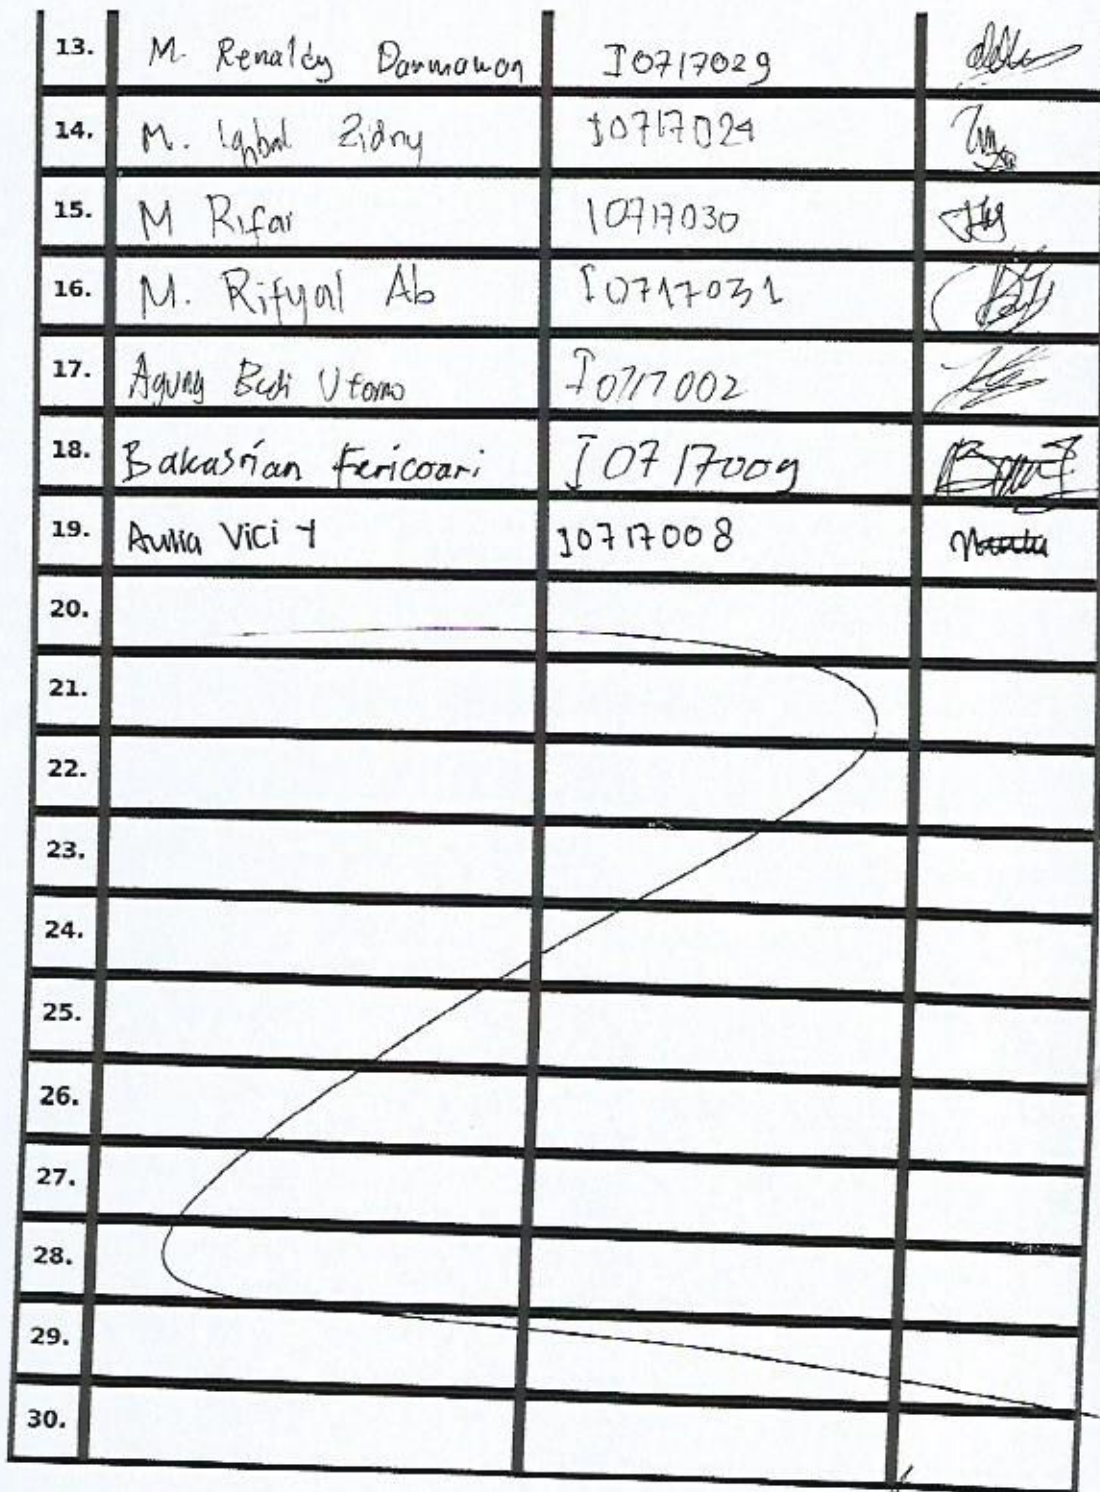 13. M. Renaldy Darmawan I0717029
14. M. Iqbal Zidny I0717024
15. M Rifai I0717030
16. M. Rifyal Ab I0717031
17. Agung Budi Utomo I0717002
18. Bakasrian Fericoari I0717009
19. Aulia Vici Y I0717008
20.
21.
22.
23.
24.
25.
26.
27.
28.
29.
30.